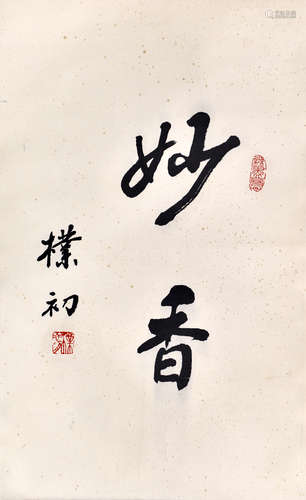 妙香
樸初